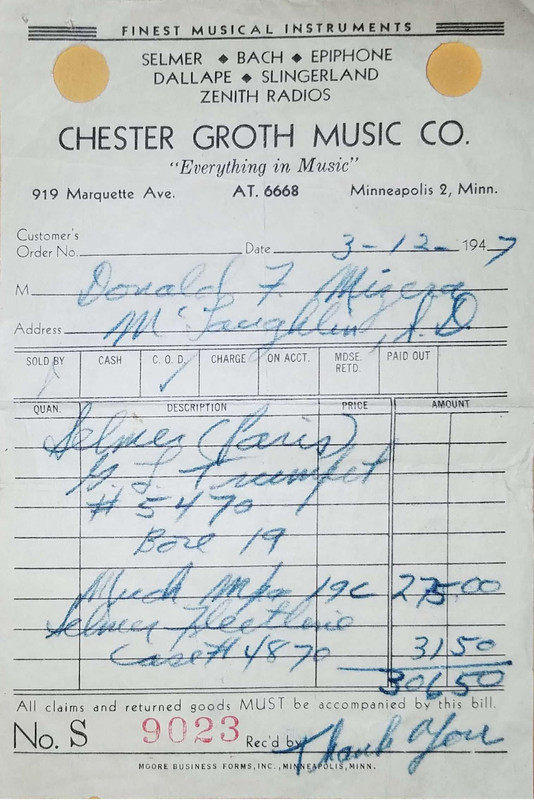 FINEST MUSICAL INSTRUMENTS
SELMER ◆ BACH ◆ EPIPHONE
DALLAPE ◆ SLINGERLAND
ZENITH RADIOS
CHESTER GROTH MUSIC CO.
"Everything in Music"
919 Marquette Ave. AT. 6668 Minneapolis 2, Minn.
Customer's
Order No. Date 3-12- 1947
M Donald F. Mizera
Address McLaughlin, S.D.
SOLD BY CASH C. O. D. CHARGE ON ACCT. MDSE. RETD. PAID OUT
✓
QUAN. DESCRIPTION PRICE AMOUNT
Selmer (Paris)
G. L. Trumpet
# 5470
Bore 19
Mpc 19C 275.00
Selmer Fleetline
Case # 4870 31 50
306 50
All claims and returned goods MUST be accompanied by this bill.
No. S 9023 Rec'd by Thank You
MOORE BUSINESS FORMS, INC., MINNEAPOLIS, MINN.